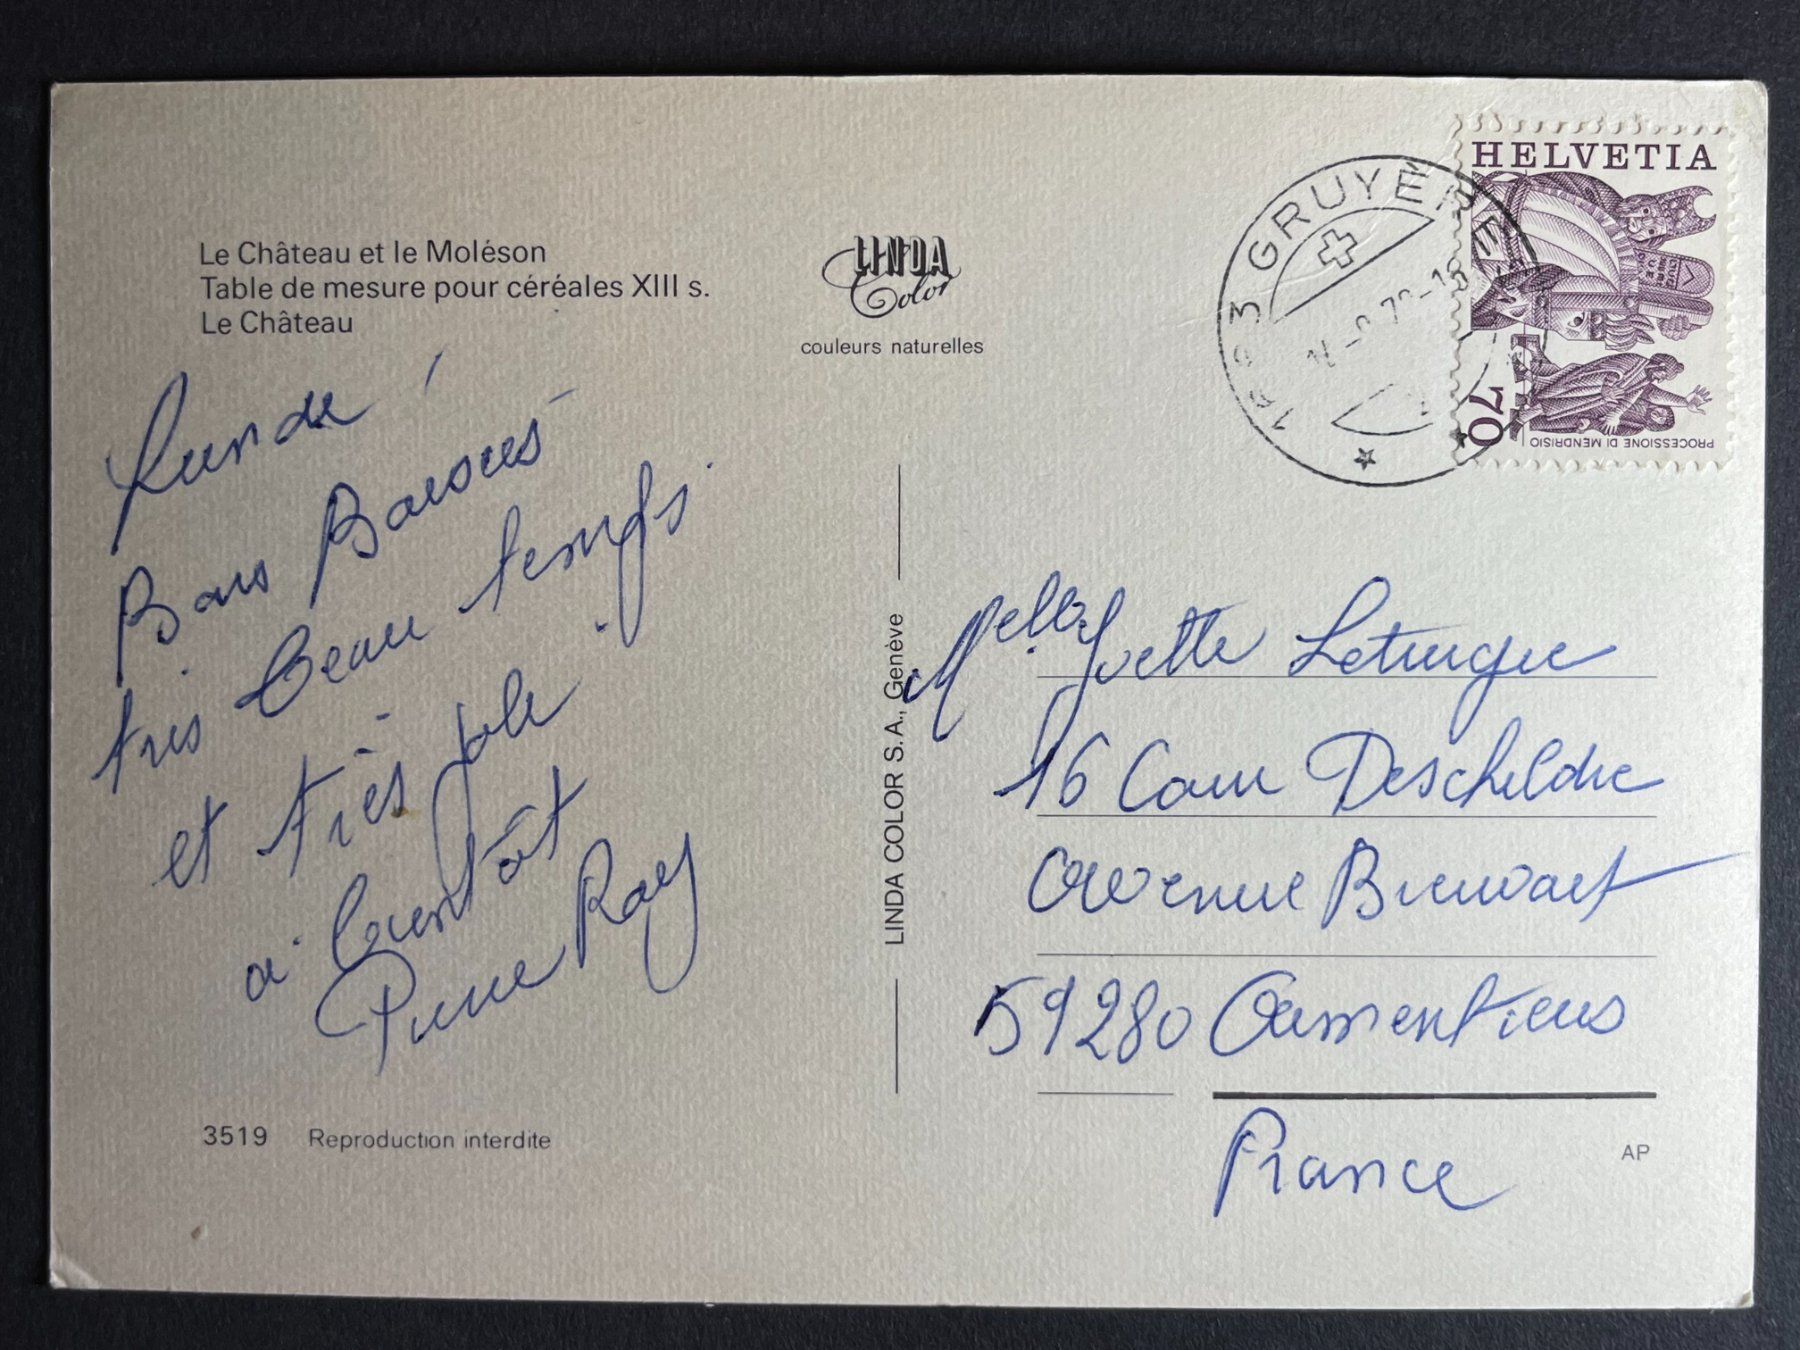 Le Château et le Moléson
Table de mesure pour céréales XIII s.
Le Château
LINDA
Color
couleurs naturelles
HELVETIA
70
PROCESSIONE DI MENDRISIO
1663 GRUYÈRES
Bons Baisers
très beau temps.
et très joli
à bientôt
Pierre Ray
LINDA COLOR S.A., Genève
Melle Yvette
16 Cour Deschildre
Avenue
59280 Armentières
France
3519 Reproduction interdite
AP